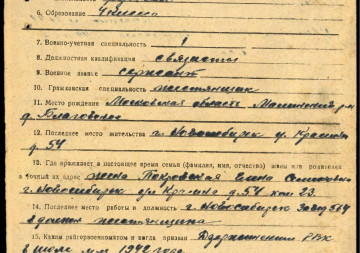 6. Образование 4 класса
7. Военно-учетная специальность 1
8. Должностная квалификация связисты
9. Военное звание сержант
10. Гражданская специальность жестянщик
11. Место рождения Московская область
12. Последнее место жительства г. Новосибирск ул.
д. 54
13. Где проживает в настоящее время семья (фамилия, имя, отчество) жены или родителей
и точный их адрес жена Покровская Елена
г. Новосибирск ул. д. 54 кв. 23.
14. Последнее место работы и должность г. Новосибирск завод 564
жестянщика
15. Каким райгорвоенкоматом и когда призван Дзержинским РВК
в июле м-це 1942 года